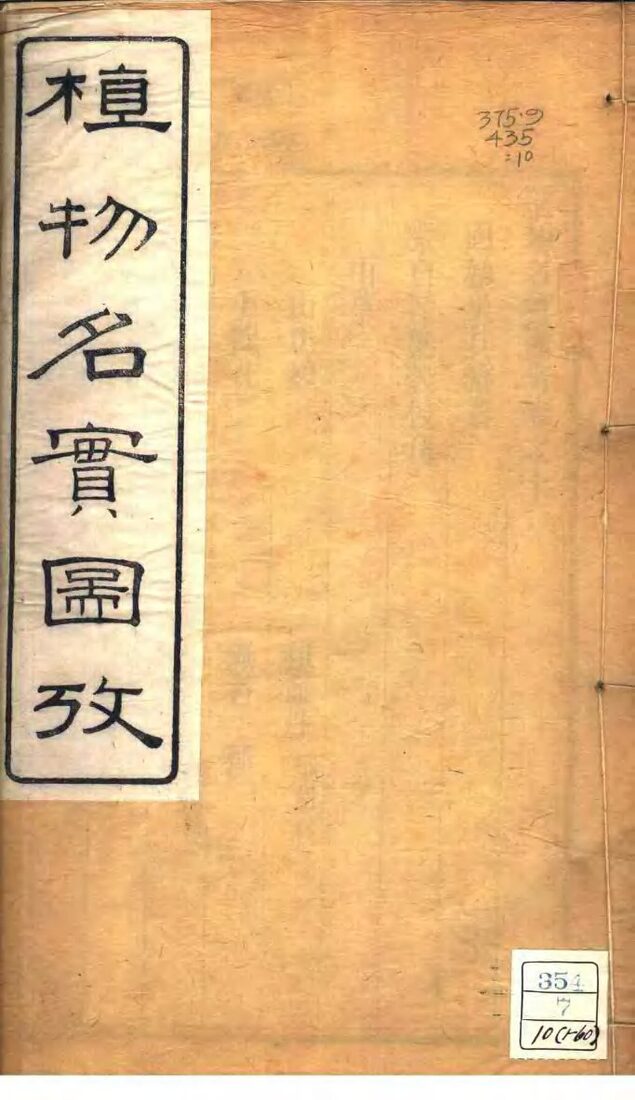 植物名實圖攷
375·9
435
:10
354
7
10(1-60)